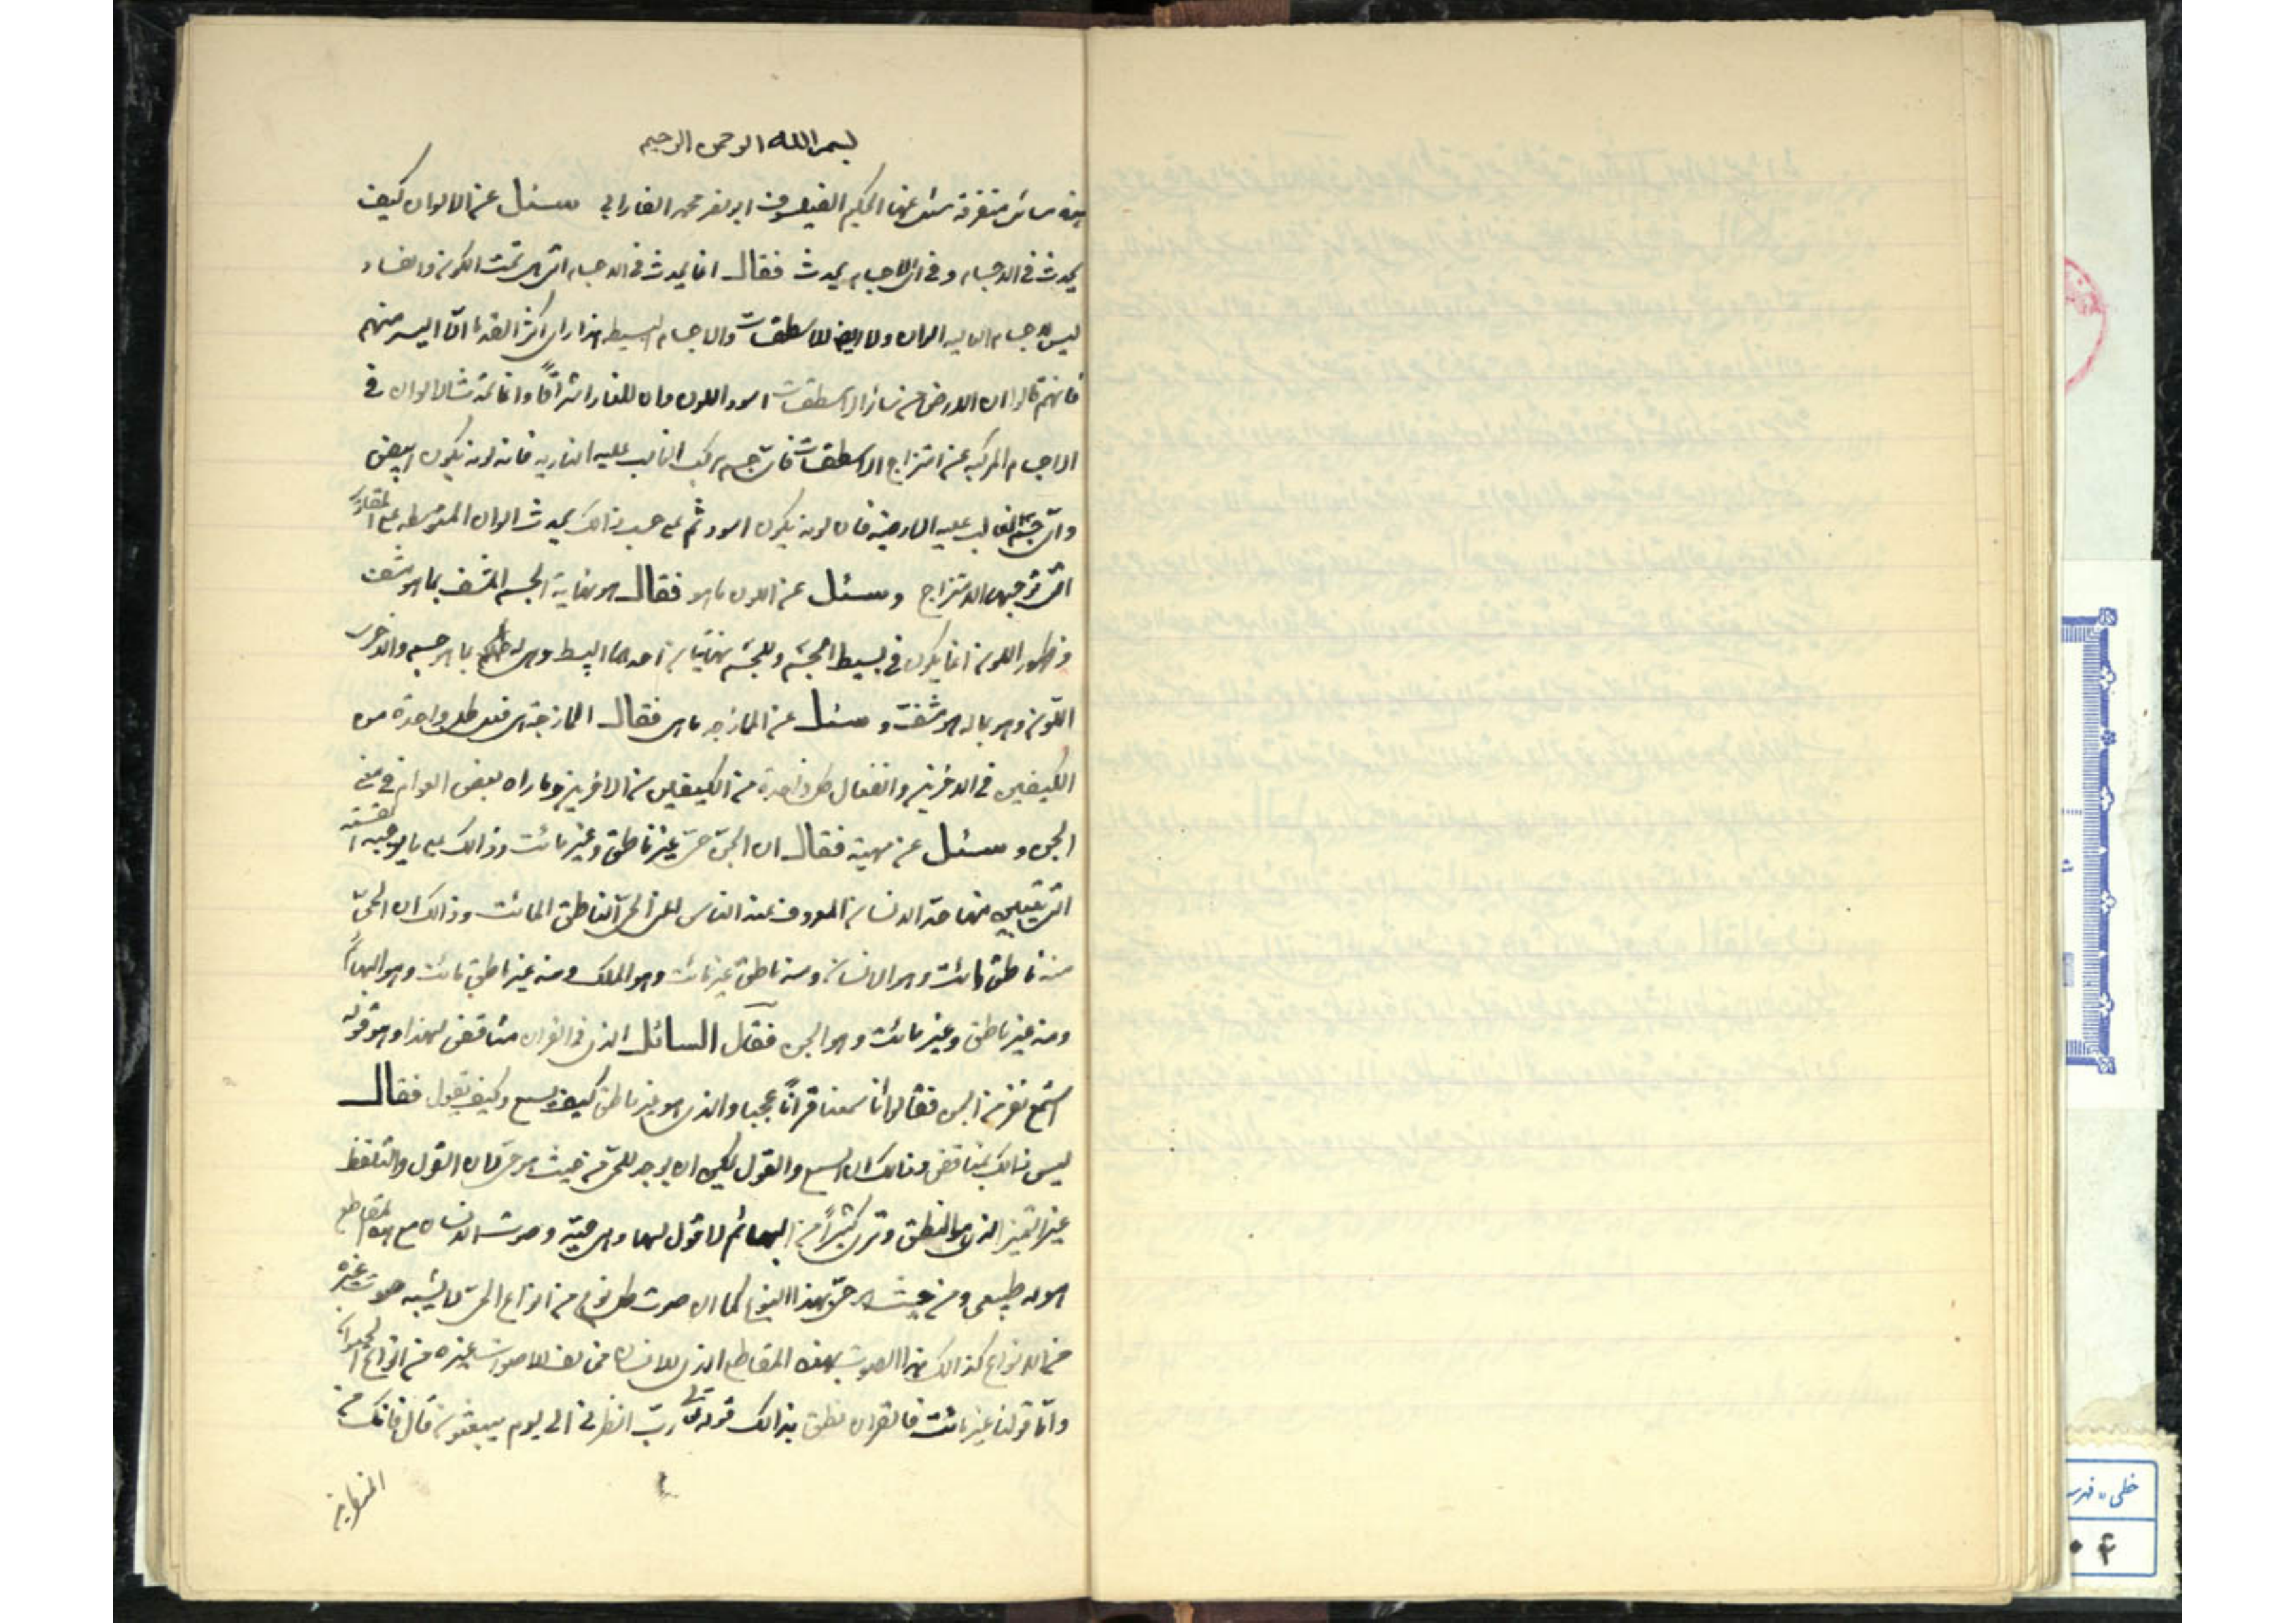 بسم الله الرحمن الرحيم
هذه مسائل متفرقة سئل عنها الحكيم الفيلسوف ابو نصر محمد الفارابي سئل عن الالوان كيف
يحدث فى الاجسام و فى اى الاجسام يحدث فقال انما يحدث فى الاجسام التى هى تحت الكون والفساد
ليس للاجسام العاليه الوان ولا ايضا للاسطقسات والاجسام البسيطه هذا راى اكثر القدما الا اليسير منهم
فانهم قالوا ان الارض من سائر الاسطقسات اسود اللون وان للنار اشراقاً وانما تحدث الالوان فى
الاجسام المركبه عن امتزاج الاسطقسات فاى جسم مركب الغالب عليه الناريه فانه لونه يكون ابيض
واى جسم الغالب عليه الارضية فان لونه يكون اسود ثم على حسب ذالك يحدث الوان المتوسطه على المقادير
التى توجبها الامتزاج و سئل عن اللون ما هو فقال هو نهاية الجسم المشف بما هو مشف
و ظهور اللون انما يكون فى بسيط الجسم و للجسم نهايتان احدهما البسيط وهى له بما هو جسم والاخرى
اللون وهو بما له هو مشف و سئل عن الممازجه ما هى فقال الممازجة هى فعل كل واحدة من
الكيفيتين فى الاخرى وانفعال كل واحدة من الكيفيتين من الاخرى وما راه بعض العوام فى معنى
الجن و سئل عن مهيته فقال ان الجن حى غير ناطق وغير مائت وذالك على ما يوجبه القسمة
التى يتبين منها حد الانسان المعروف عند الناس اعنى الحى الناطق المائت وذالك ان الحى
منه ناطق مائت وهو الانسان ومنه ناطق غير مائت وهو الملك ومنه غير ناطق مائت وهو البهائم
ومنه غير ناطق وغير مائت وهو الجن فقال السائل الذى فى القران مناقض لهذا وهو قوله
استمع نفر من الجن فقالوا انا سمعنا قراناً عجبا والذى هو غير ناطق كيف يسمع وكيف يقول فقال
ليس ذالك بمناقض وذالك ان السمع والقول يمكن ان يوجد للحى من حيث هو حى لان القول والتلفظ
غير التميز الذى هو النطق وترى كثيراً من البهائم لا قول لها وهى حية وصوت الانسان مع هذه المقاطع
هو له طبيعى ومن حيث هو حى بهذا النوع كما ان صوت كل نوع من انواع الحى لا يشبه صوت غيره
من الانواع كذالك هذا الصوت بهذه المقاطع الذى للانسان مخالف للاصوات غيره من انواع الحيوان
واما قولنا غير مائت فالقران نطق بذالك قوله تعالى رب انظرنى الى يوم يبعثون قال فانك من
المنظرين
خطى ، فهرست